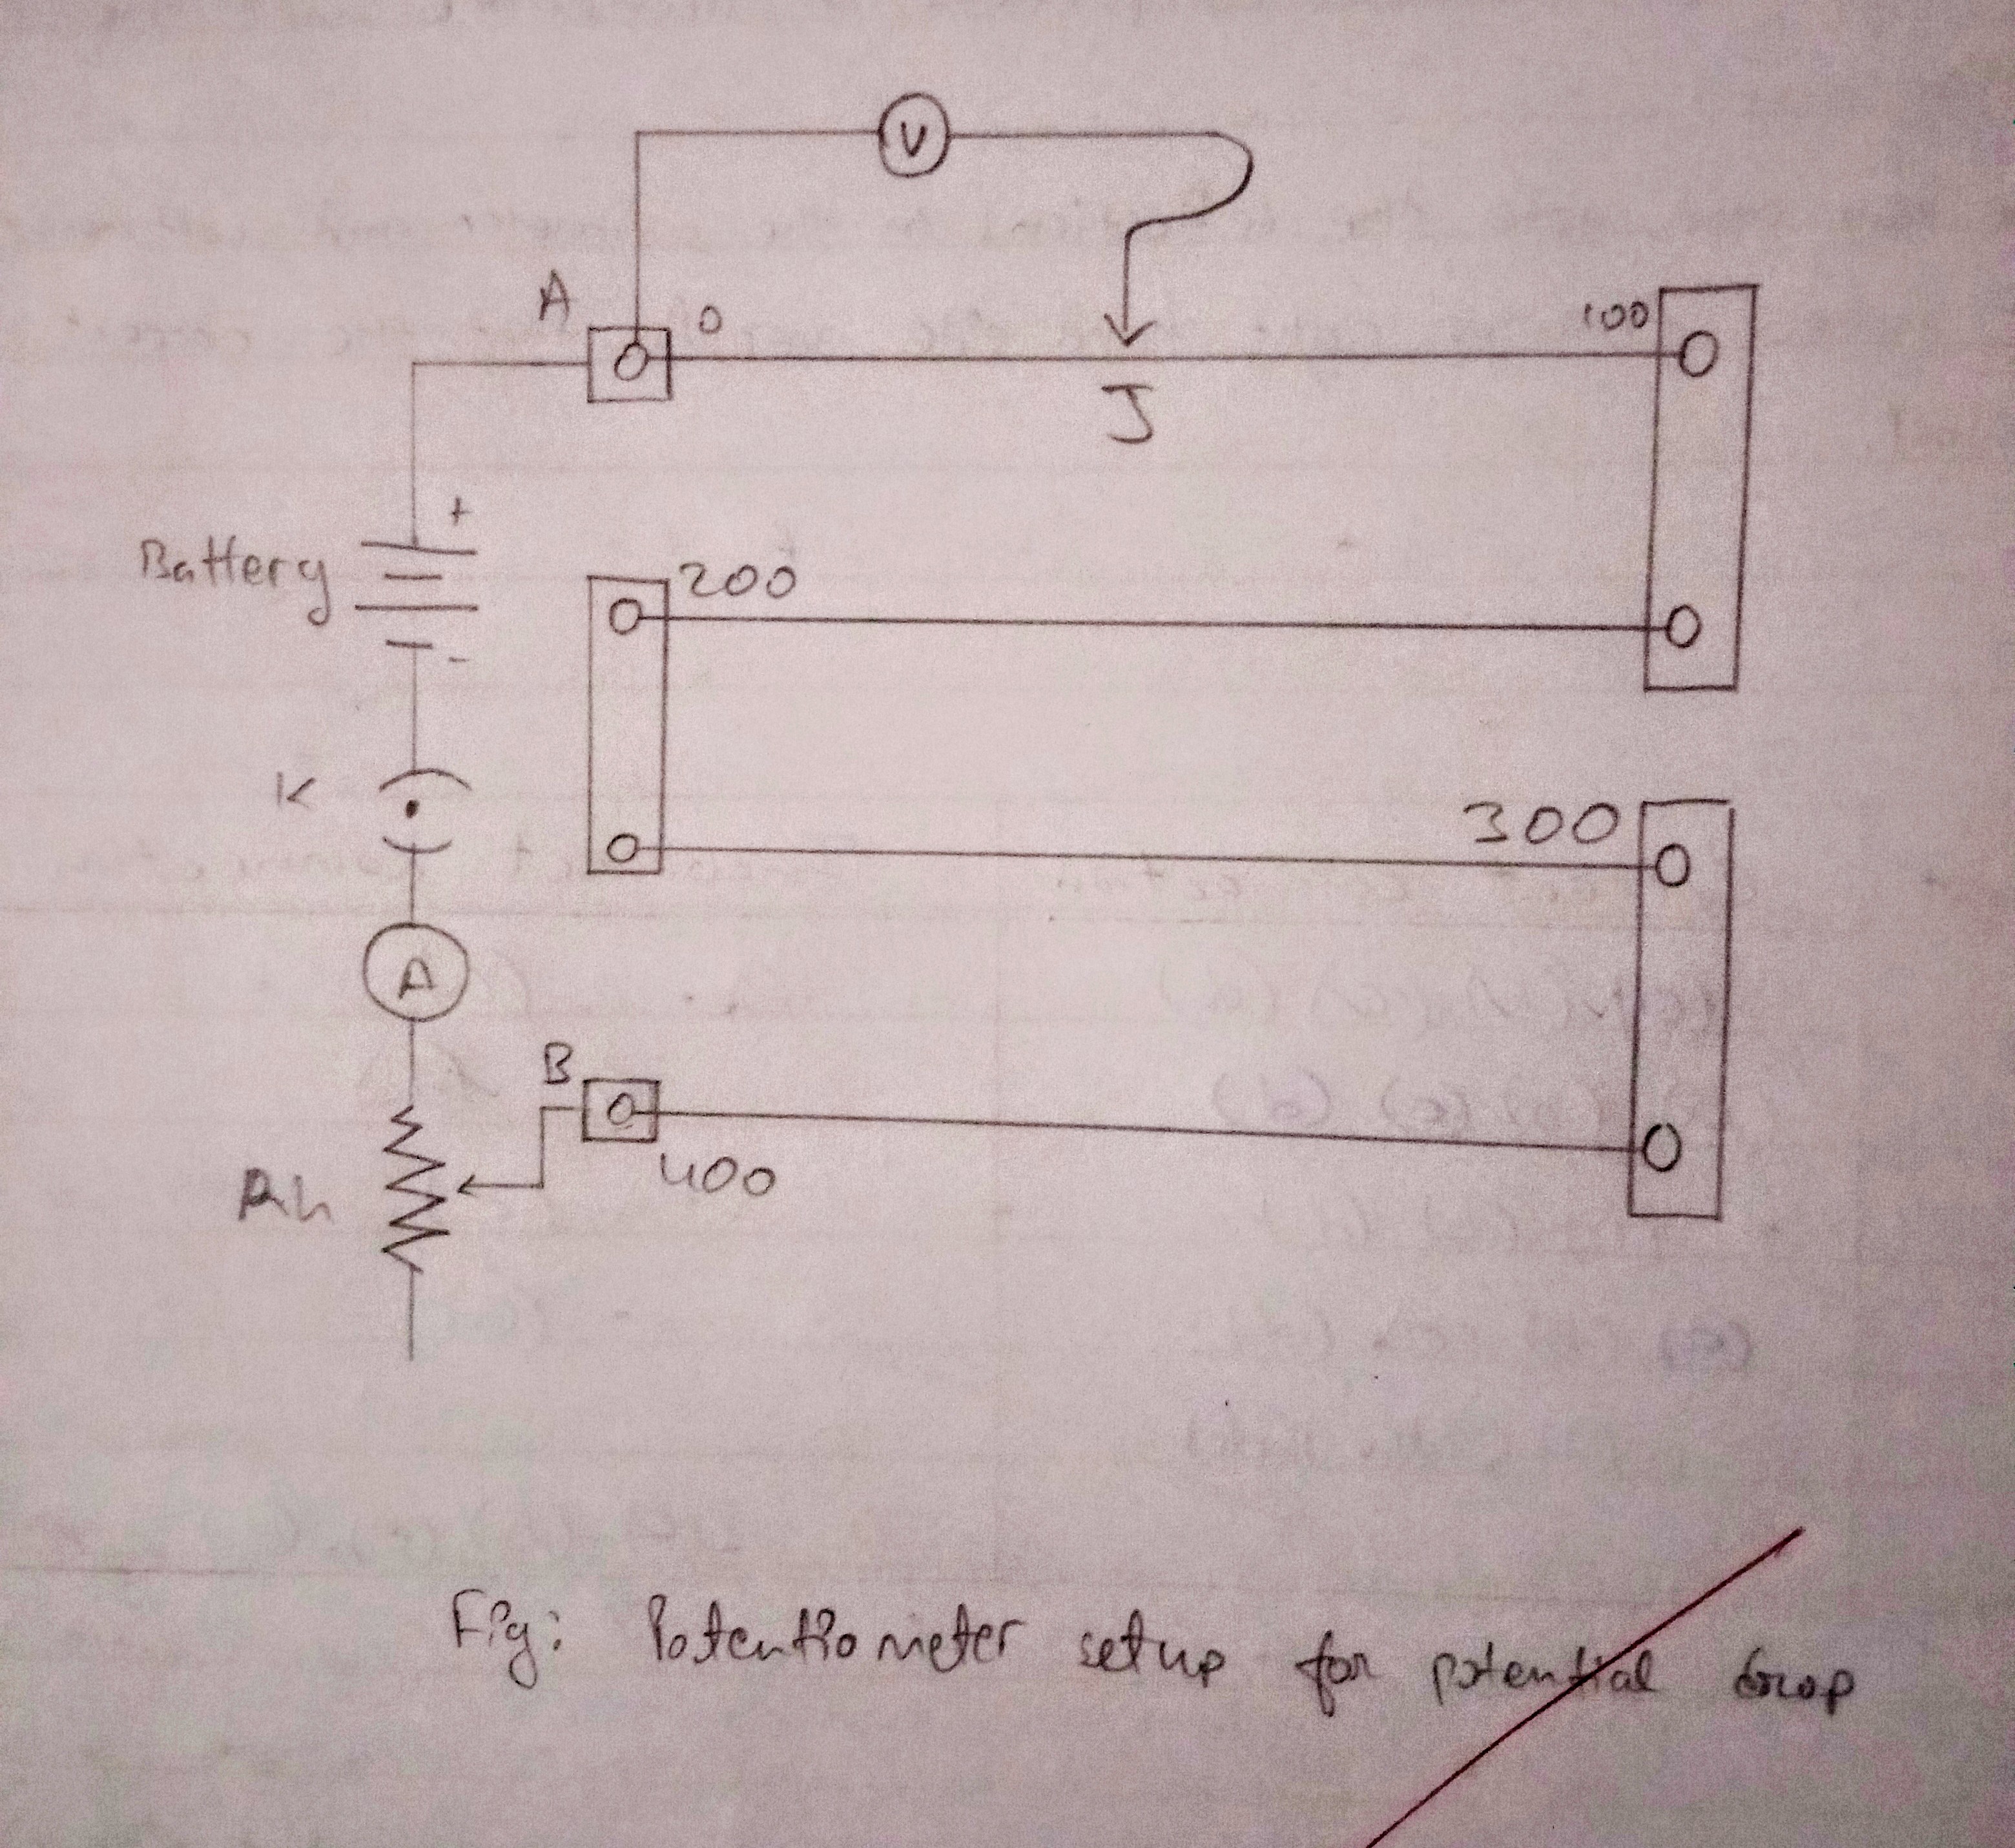 V
A
0
100
J
+
Battery
200
-
K
300
A
B
400
Rh
Fig: Potentiometer setup for potential drop